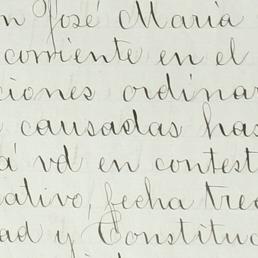 n José María
corriente en el
ciones ordinar
causadas has
á vd en contest
ativo, fecha trec
ad y Constituc